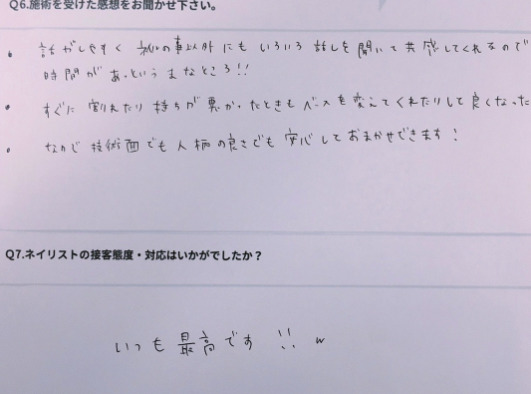 Q6.施術を受けた感想をお聞かせ下さい。
・ 話がしやすく の事以外にもいろいろ話しを聞いて共感してくれるので
時間があっというまなところ!!
・ すぐに割れたり持ちが悪かったときもベースを変えてくれたりして良くなった
・ なので技術面でも人柄の良さでも安心しておまかせできます!
Q7.ネイリストの接客態度・対応はいかがでしたか?
いつも最高です!! w